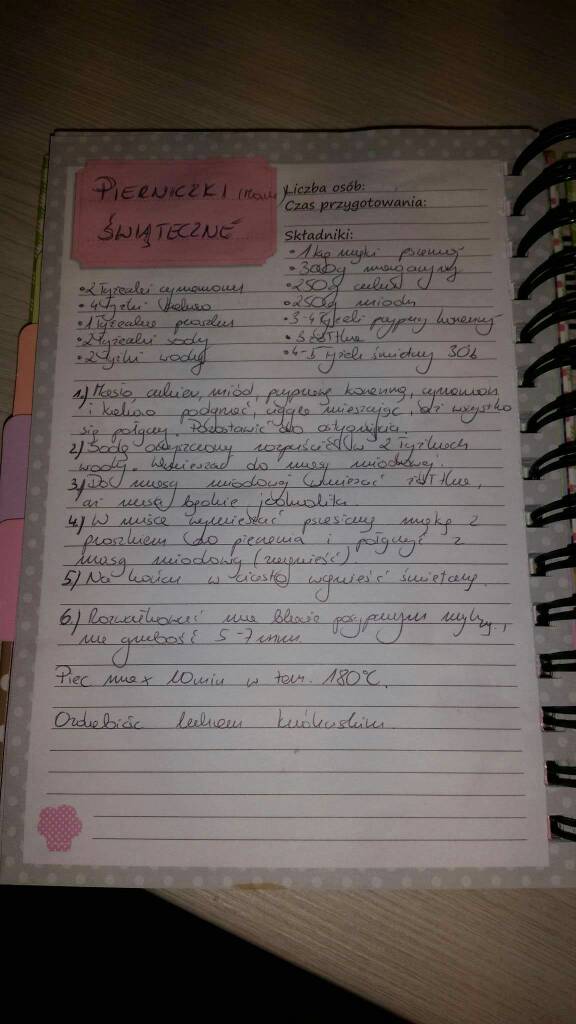 PIERNICZKI
ŚWIĄTECZNE
Liczba osób:
Czas przygotowania:
Składniki:
• 1 kg mąki pszennej
• 300g margaryny
• 250g cukru
• 250g miodu
• 3-4 łyżeczki przyprawy korzennej
• 3 żółtka
• 4-5 łyżek śmietany 30%
• 2 łyżeczki cynamonu
• 4 łyżki kakao
• 1 łyżeczka proszku
• 2 łyżeczki sody
• 2 łyżki wody
1.) Masło, cukier, miód, przyprawę korzenną, cynamon
i kakao podgrzać, ciągle mieszając, aż wszystko
się połączy. Pozostawić do ostygnięcia.
2) Sodę oczyszczoną rozpuścić w 2 łyżkach
wody. Wmieszać do masy miodowej.
3) Do masy miodowej wmieszać żółtka,
aż masa będzie jednolita.
4.) W misce wymieszać przesianą mąkę z
proszkiem do pieczenia i połączyć z
masą miodową (zagnieść).
5) Na koniec w ciasto wgnieść śmietanę.
6.) Rozwałkować na blacie posypanym mąką,
na grubość 5-7mm.
Piec max 10min w tem. 180°C.
Ozdabiać lukrem królewskim